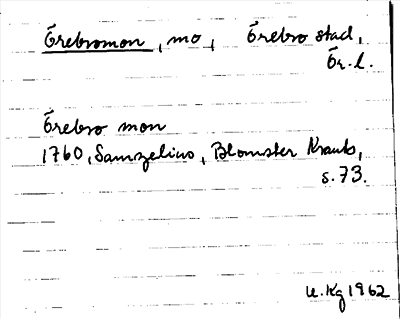 Örebromon, mo, Örebro stad,
Ör. l.
Örebro mon
1760, Samzelius, Blomster Krants,
s. 73.
U. Kg 1962